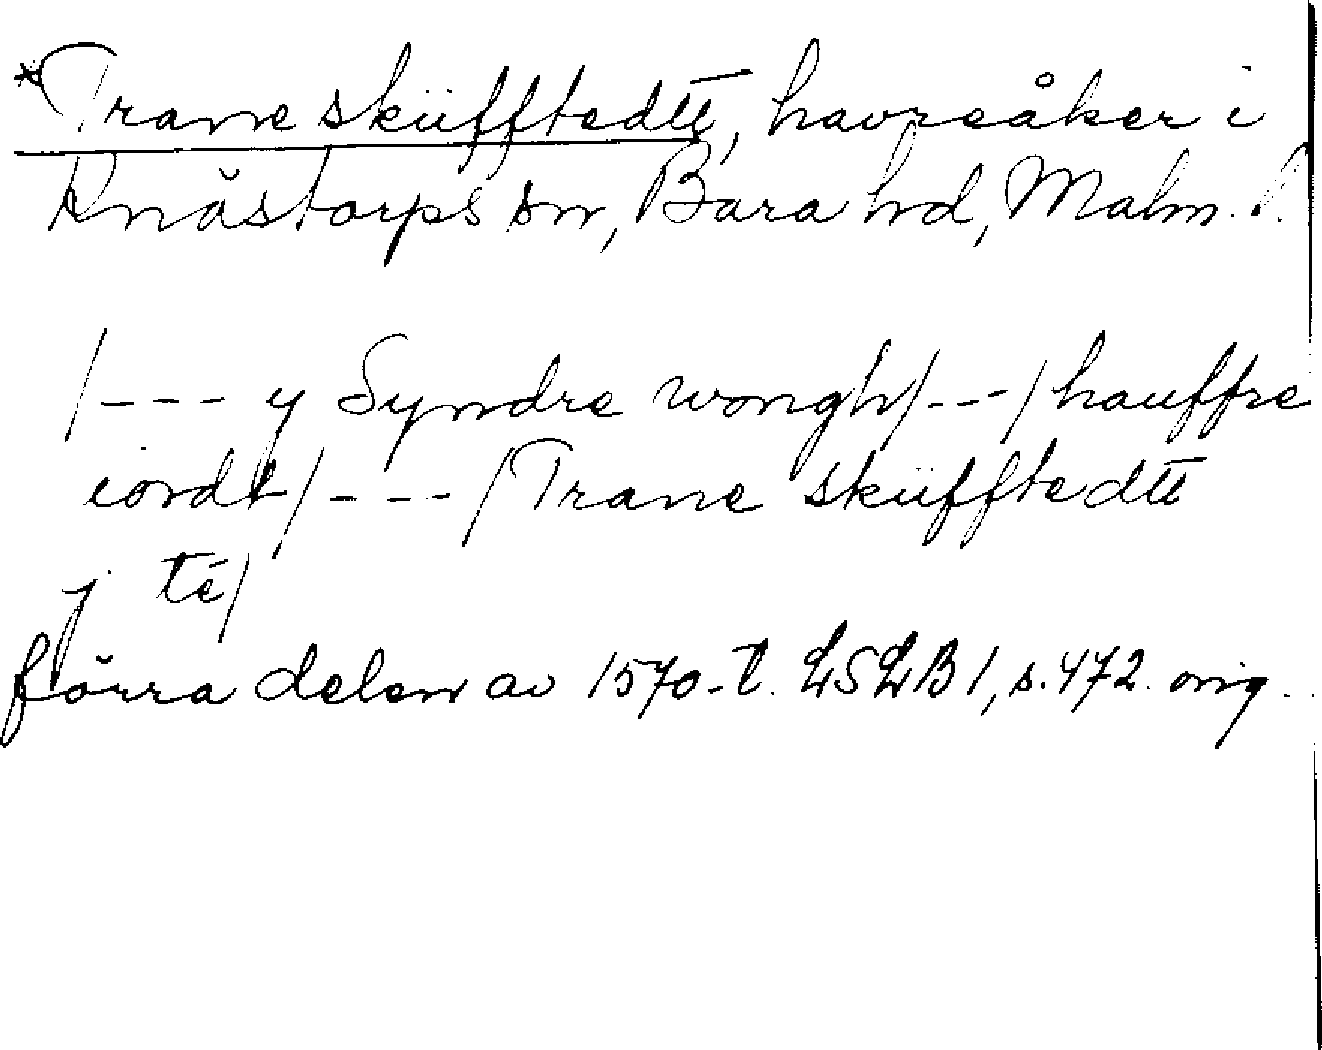 *Trane sküfftedtt, havreåker i
Knästorps sn, Bara hd, Malm. l.
/--- y Syndre wongh/---/hauffre
iordt/----/Trane sküfftedtt
j té/
förra delen av 1570-t. LSLB 1, s. 472. orig.